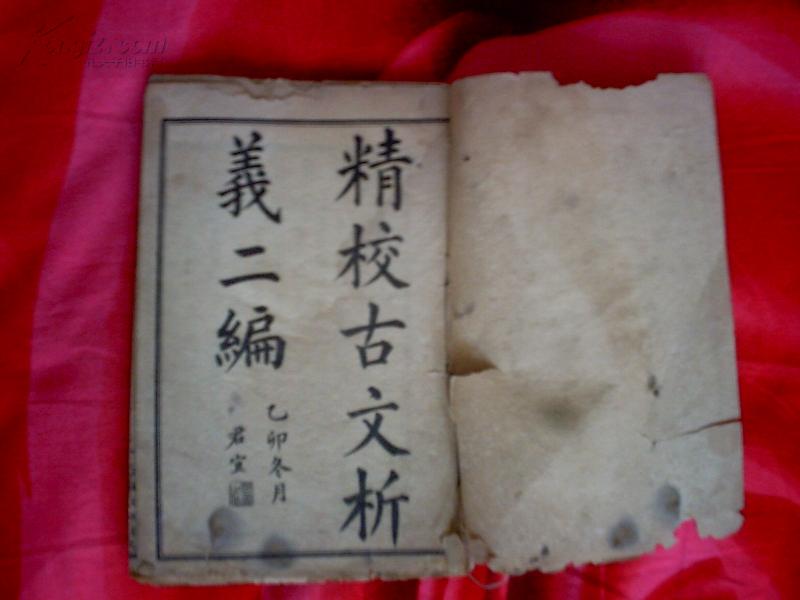 精校古文析
義二編
乙卯冬月
君宜